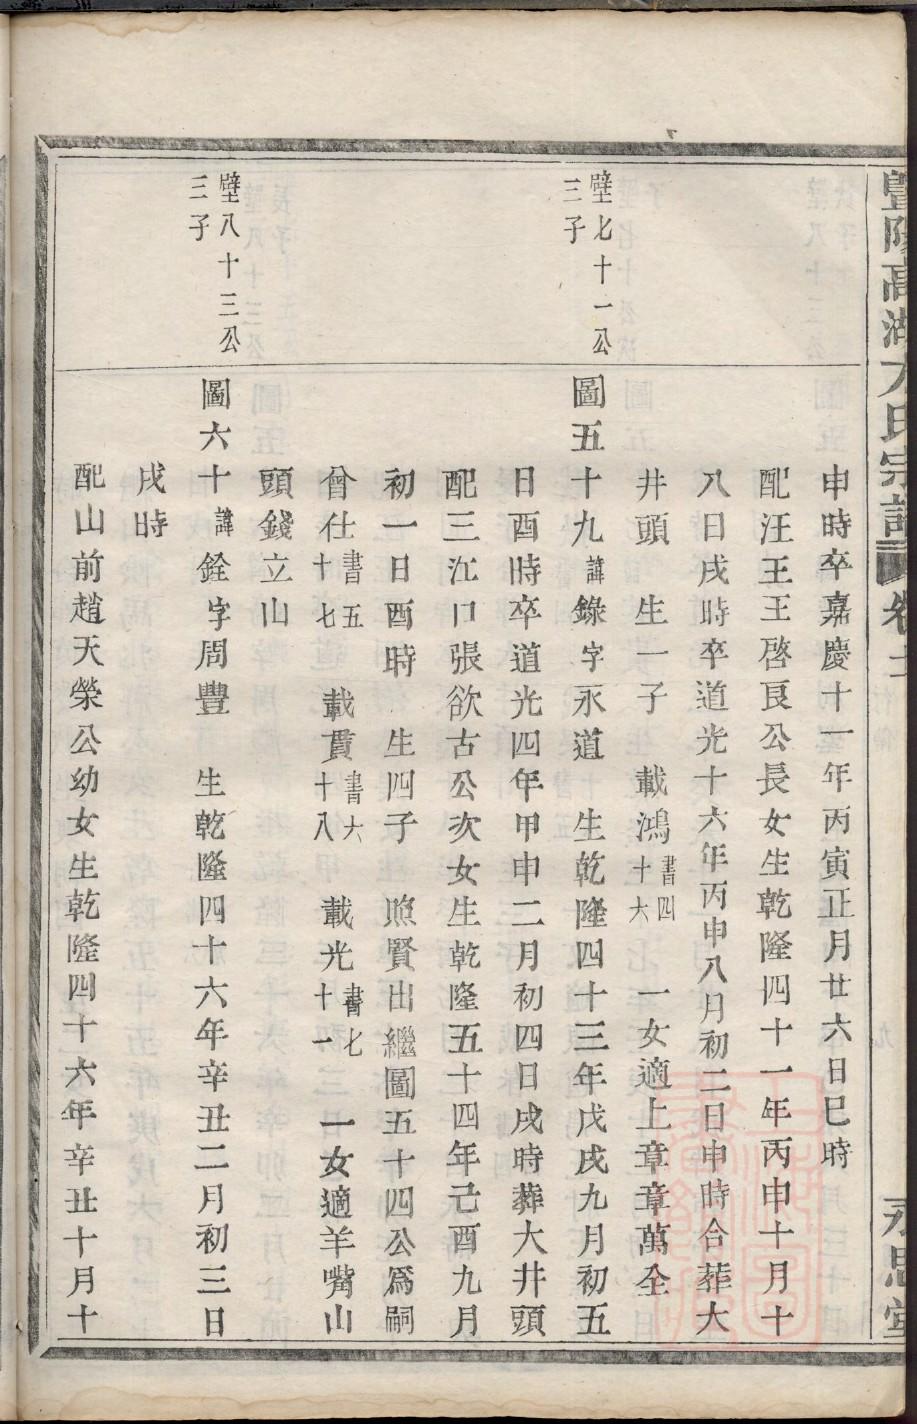 暨陽高湖方氏宗譜 卷十二
永思堂
申時卒嘉慶十一年丙寅正月廿六日巳時
配汪王王啓良公長女生乾隆四十一年丙申十月十
八日戌時卒道光十六年丙申八月初二日申時合葬大
井頭 生一子 載鴻書四十六 一女適上章章萬全
壁七十一公
三子
圖五十九諱錄字永道 生乾隆四十三年戊戌九月初五
日酉時卒道光四年甲申二月初四日戌時葬大井頭
配三江口張欲古公次女生乾隆五十四年己酉九月
初一日酉時 生四子 煦賢出繼圖五十四公爲嗣
會仕書五十七 載貫書六十八 載光書七十一 一女適羊嘴山
頭錢立山
壁八十三公
三子
圖六十諱銓字周豐 生乾隆四十六年辛丑二月初三日
戌時
配山前趙天榮公幼女生乾隆四十六年辛丑十月十